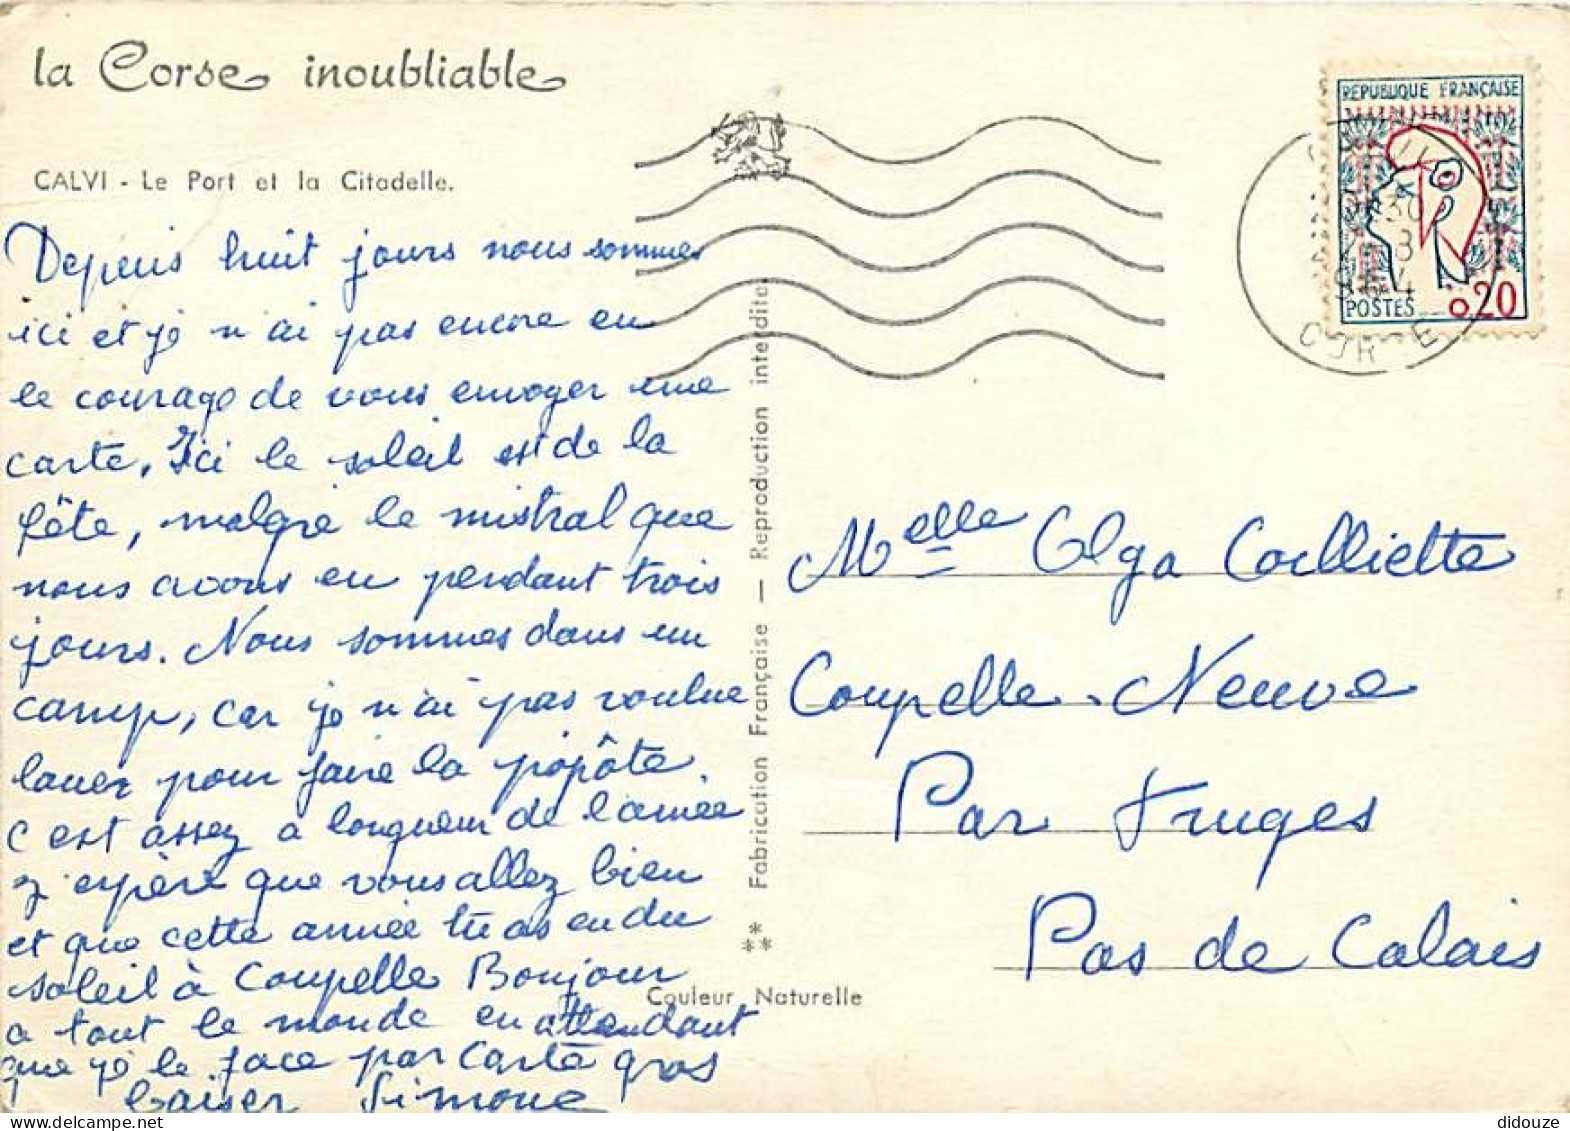 la Corse inoubliable
CALVI - Le Port et la Citadelle.
Depuis huit jours nous sommes
ici et je n'ai pas encore eu
le courage de vous envoyer une
carte. Ici le soleil est de la
fête, malgré le mistral que
nous avons eu pendant trois
jours. Nous sommes dans un
camp, car je n'ai pas voulue
louer pour faire la popôte.
c'est assez a longueur de l'année
J'espère que vous allez bien
et que cette année tu as eu du
soleil à Coupelle Bonjour
a tout le monde en attendant
que je le face par carte gros
baiser Simone
** Fabrication Française — Reproduction interdite.
Couleur Naturelle
REPUBLIQUE FRANÇAISE
POSTES 0,20
CORSE
Melle Olga Coilliette
Coupelle-Neuve
Par Fruges
Pas de Calais
didouze